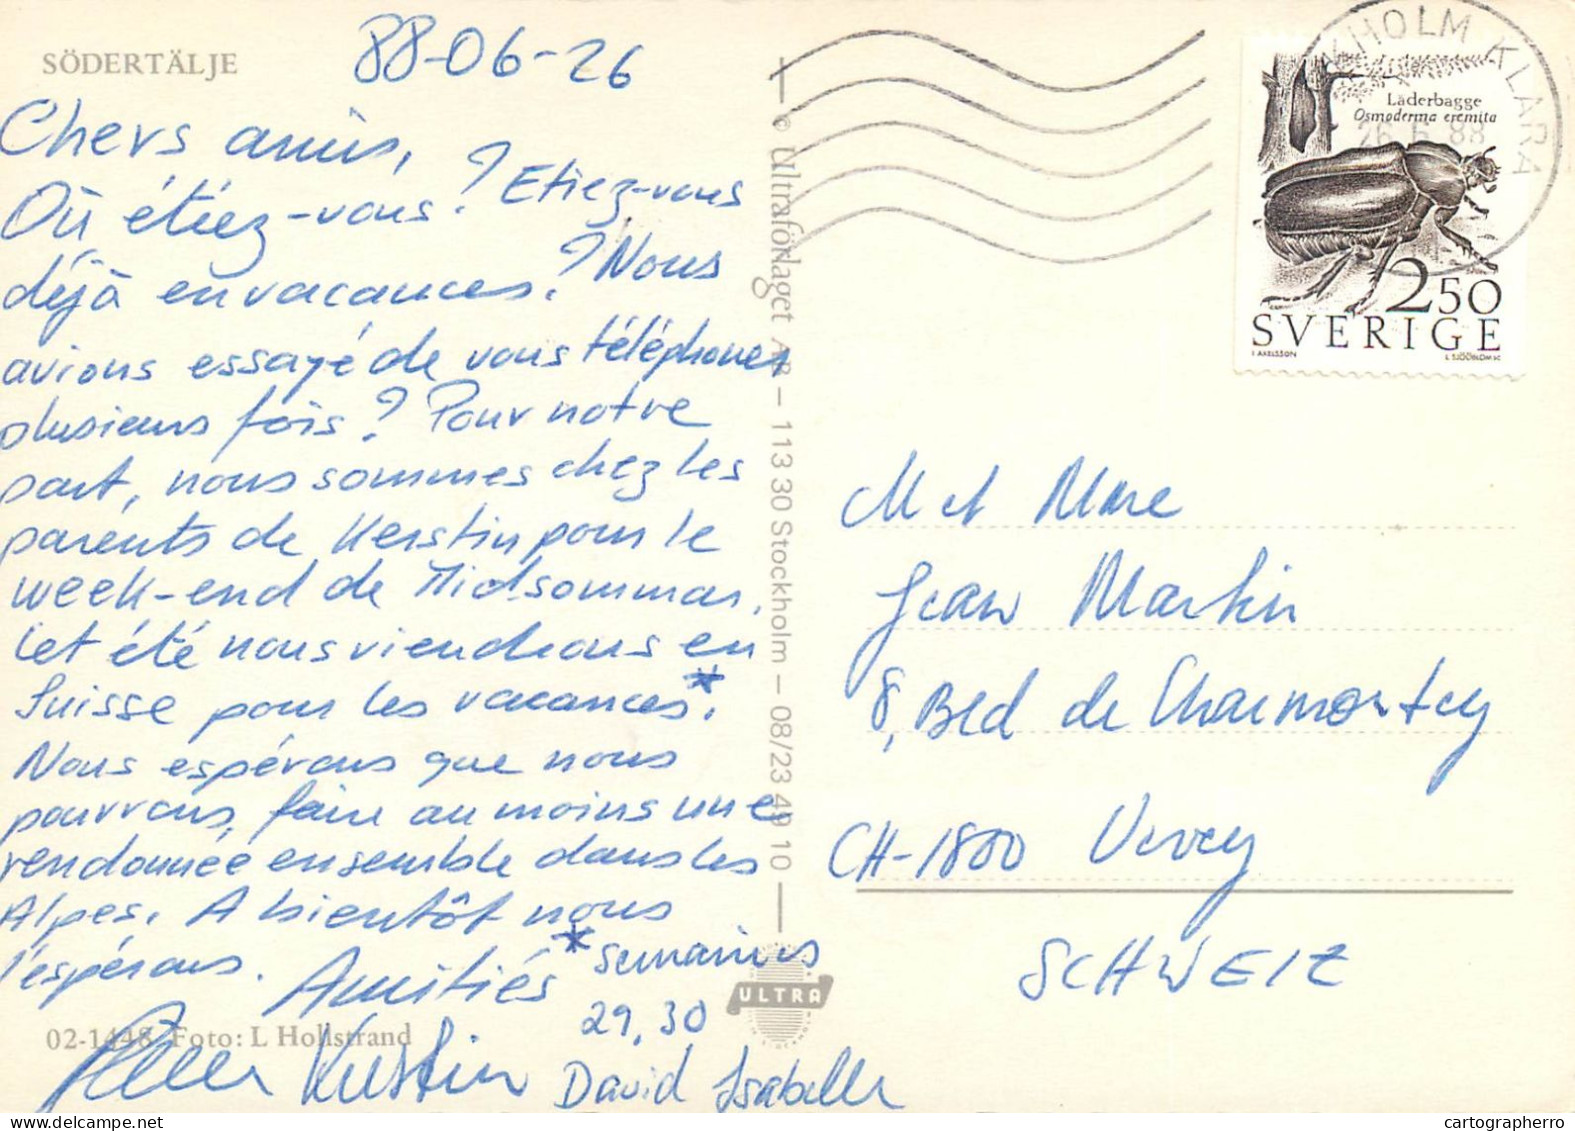 SÖDERTÄLJE
88-06-26
Chers amis,
Où étiez-vous? Etiez-vous
déjà en vacances? Nous
avions essayé de vous téléphoner
plusieurs fois? Pour notre
part, nous sommes chez les
parents de Kerstin pour le
week-end de Midsommar.
Cet été nous viendrons en
Suisse pour les vacances*.
Nous espérons que nous
pourrons faire au moins une
rendonnée ensemble dans les
Alpes. A bientôt nous
l'espérons.
Amitiés
* semaines
29, 30
Kerstin
David Isabelle
02-1448 Foto: L Hollstrand
© Ultraförlaget AB – 113 30 Stockholm – 08/23 49 10
ULTRA
KHOLM KLARA
26.6.88
Läderbagge
Osmoderma eremita
2.50
SVERIGE
I AXELSSON
L SJÖÖBLOM SC
M et Mme
Jean Martin
8, Bld de Charmontey
CH-1800 Vevey
SCHWEIZ
cartographerro